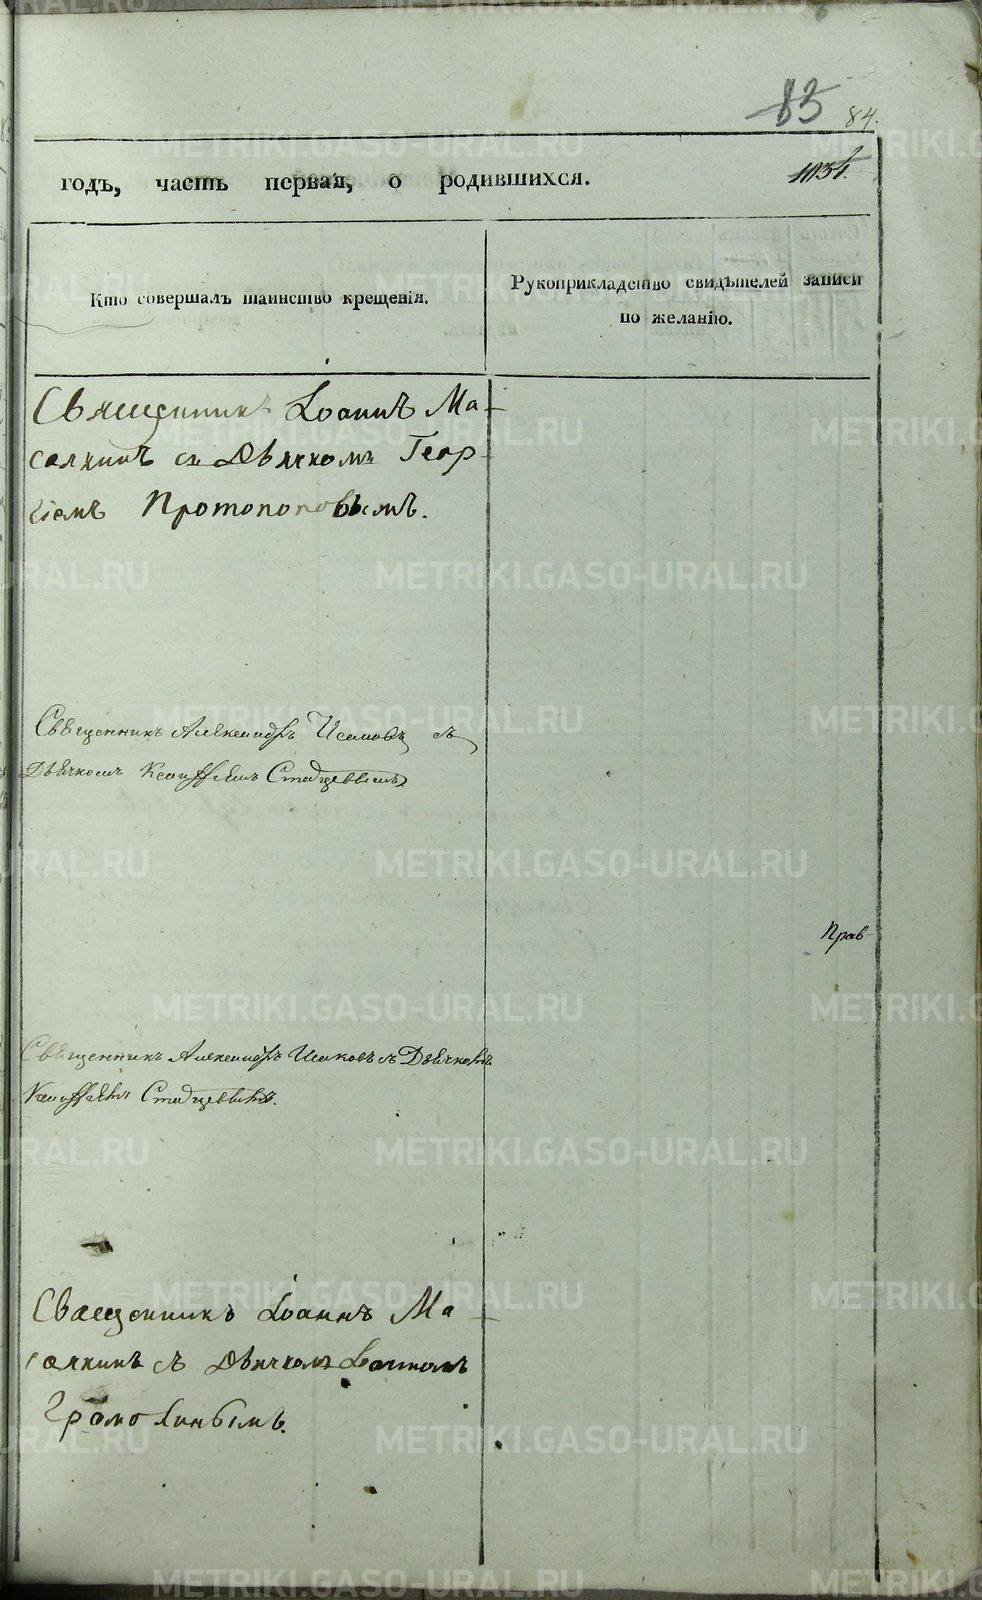 83
84.
годъ, часть первая, о родившихся.
Кто совершалъ таинство крещенія.
Рукоприкладство свидѣтелей записи
по желанію.
Священникъ Іоаннъ Ма-
салкинъ съ Дьячкомъ Геор-
гіемъ Протопоповымъ.
Священникъ Александръ Исаковъ съ
Дьячкомъ
Прав-
Священникъ Александръ Исаковъ съ Дьячкомъ
Священникъ Іоаннъ Ма-
салкинъ съ Дьячкомъ Іоанномъ
METRIKI.GASO-URAL.RU